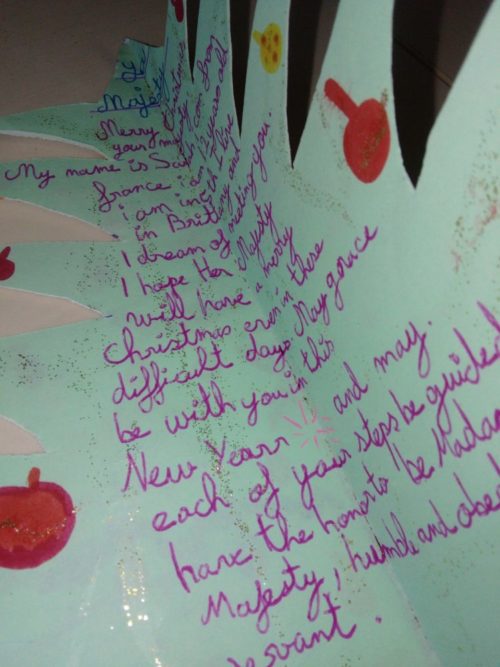 Majesty
Merry Christmas
your majesty
My name is Sar
france i am 12 years old
i am in
in Brittany and I love
I dream of meeting you.
I hope Her Majesty
will have a merry
Christmas even in these
difficult days. May grace
be with you in this
New Years and may.
each of your steps be guided
have the honor to be Madam
Majesty, humble and obe
servant.